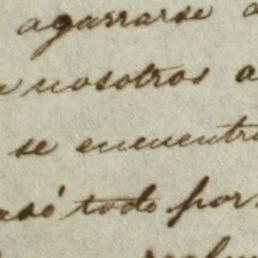 agarrarse
nosotros a
se encuentr
todo por